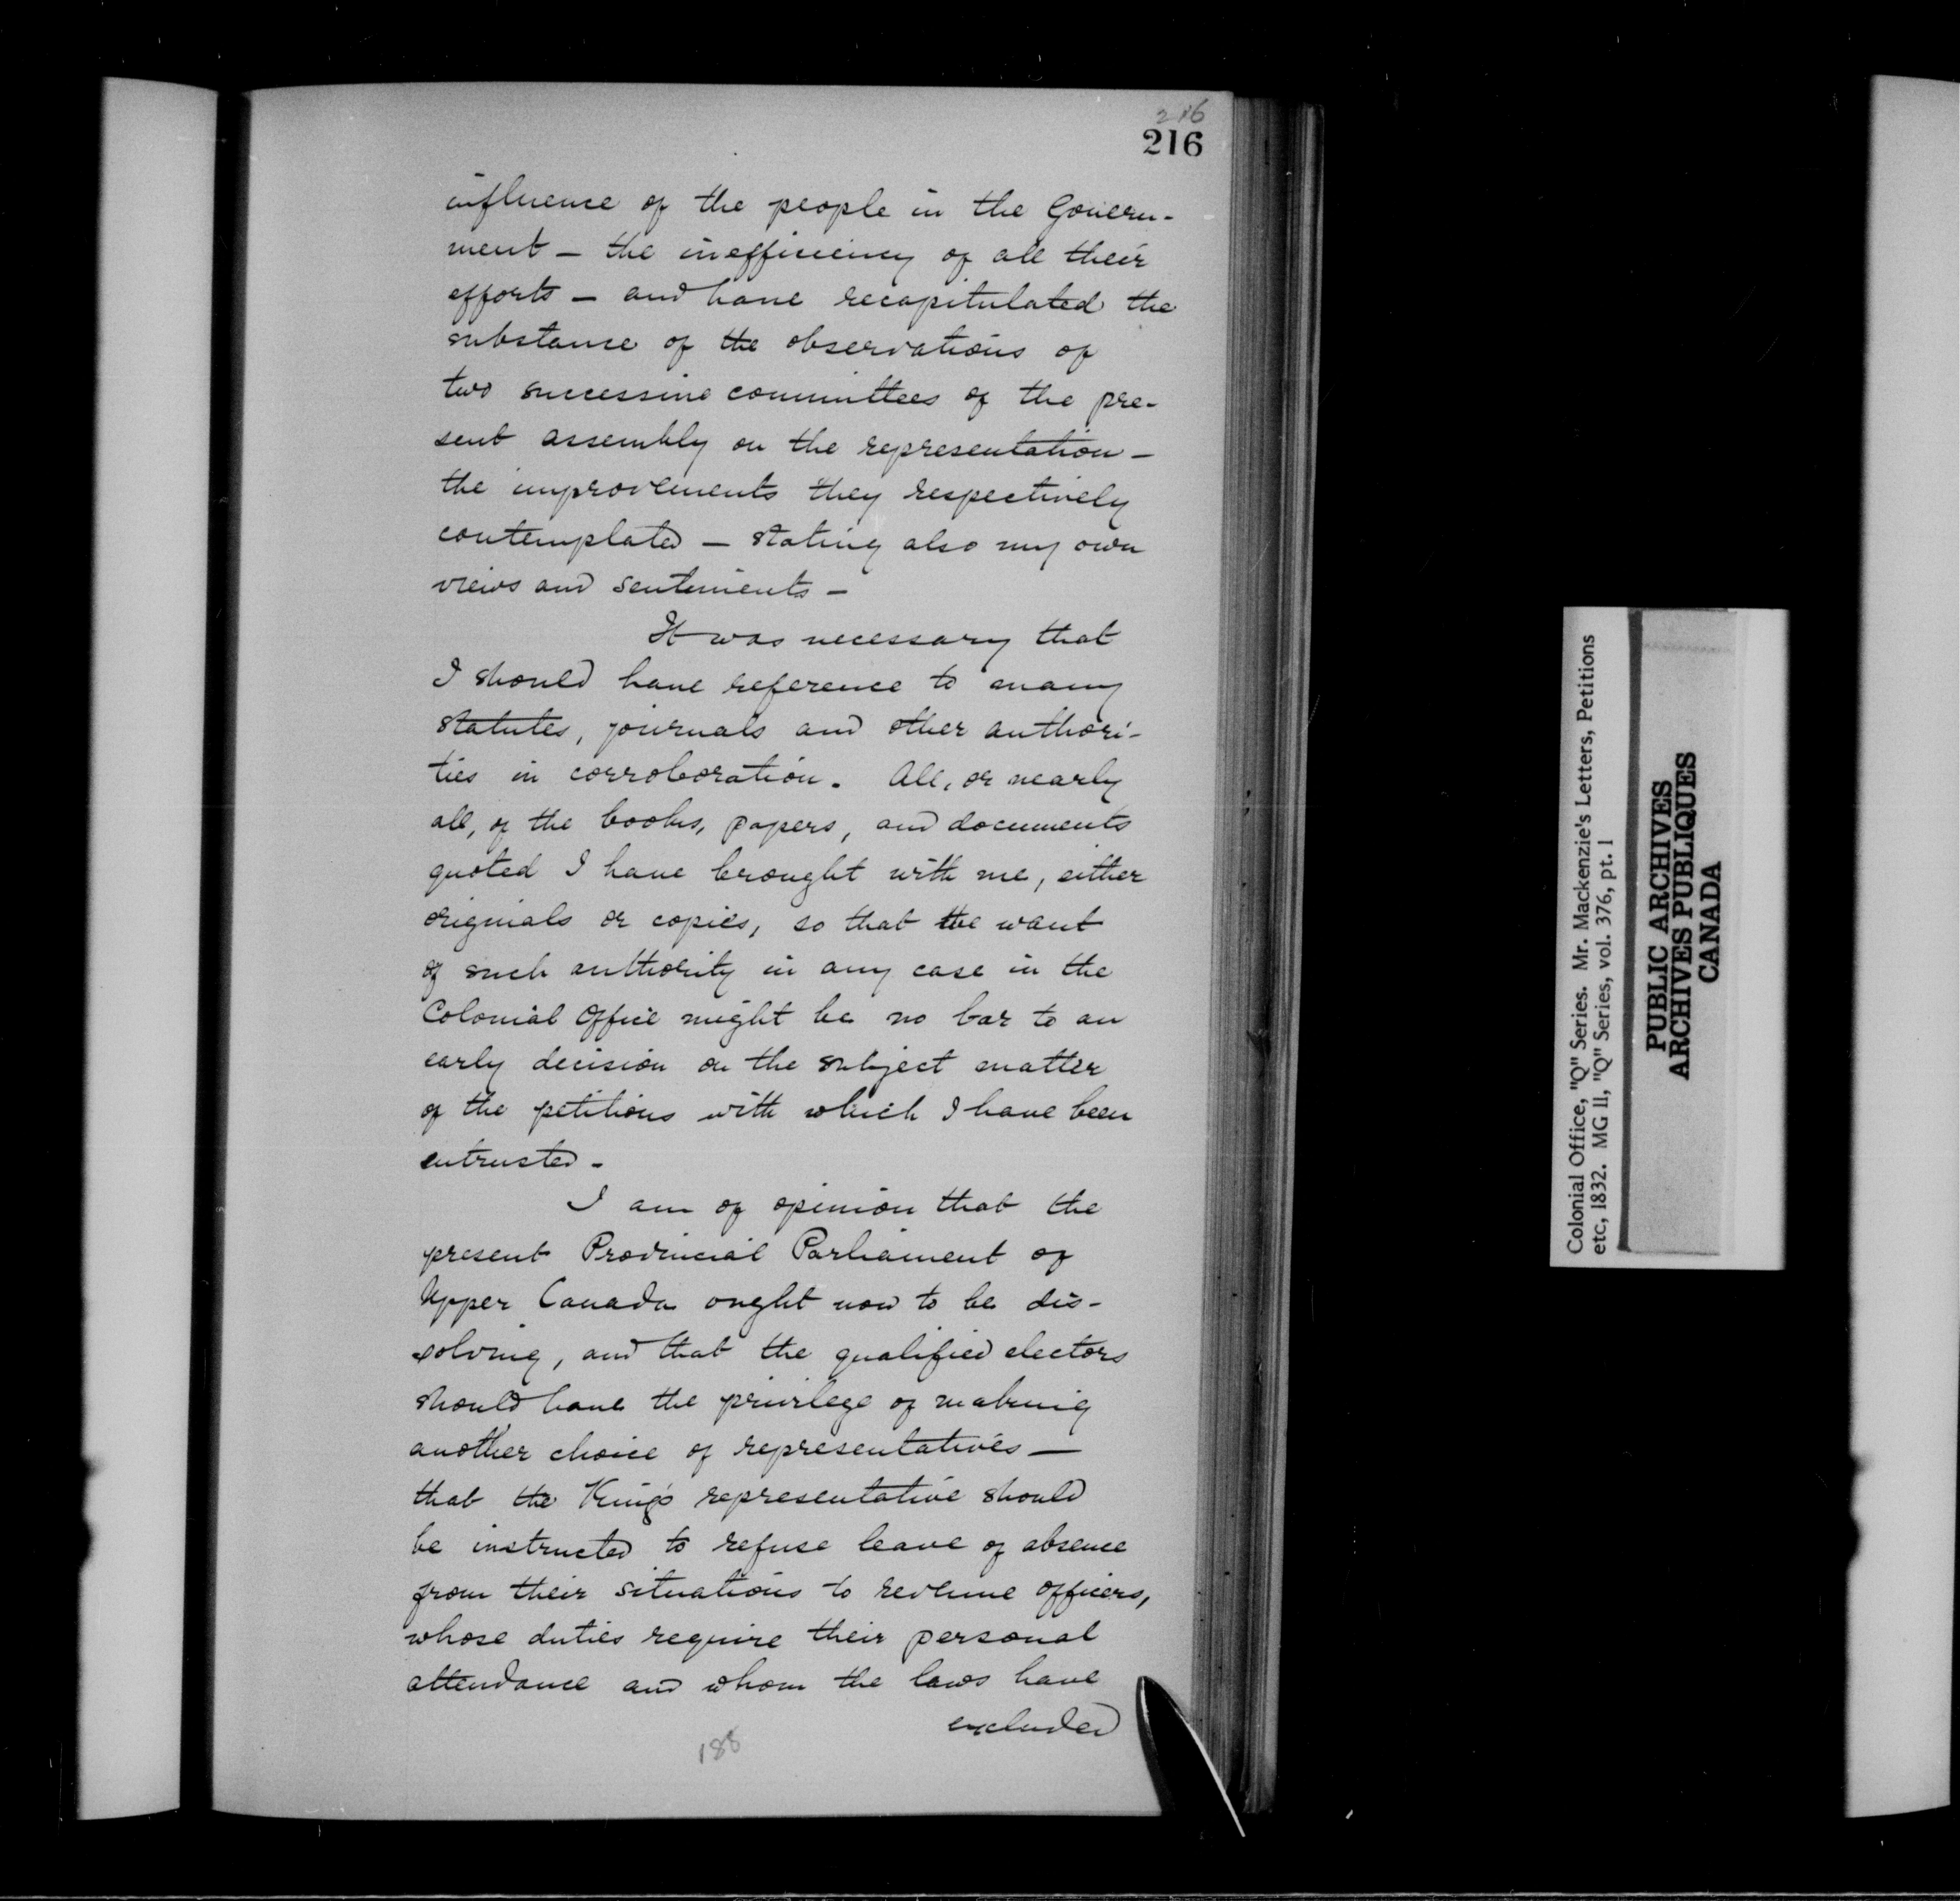 216
216
influence of the people in the Govern-
ment – the inefficiency of all their
efforts – and have recapitulated the
substance of the observations of
two successive committees of the pre-
sent assembly on the representation –
the improvements they respectively
contemplated – stating also my own
views and sentiments –
It was necessary that
I should have reference to many
statutes, journals and other authori-
ties in corroboration. All, or nearly
all, of the books, papers, and documents
quoted I have brought with me, either
originals or copies, so that the want
of such authority in any case in the
Colonial Office might be no bar to an
early decision on the subject matter
of the petitions with which I have been
entrusted –
I am of opinion that the
present Provincial Parliament of
Upper Canada ought now to be dis-
solving, and that the qualified electors
should have the privilege of making
another choice of representatives –
that the King's representative should
be instructed to refuse leave of absence
from their situations to revenue officers,
whose duties require their personal
attendance and whom the laws have
excluded
188
Colonial Office, "Q" Series. Mr. Mackenzie's Letters, Petitions
etc, 1832. MG 11, "Q" Series, vol. 376, pt. 1
PUBLIC ARCHIVES
ARCHIVES PUBLIQUES
CANADA